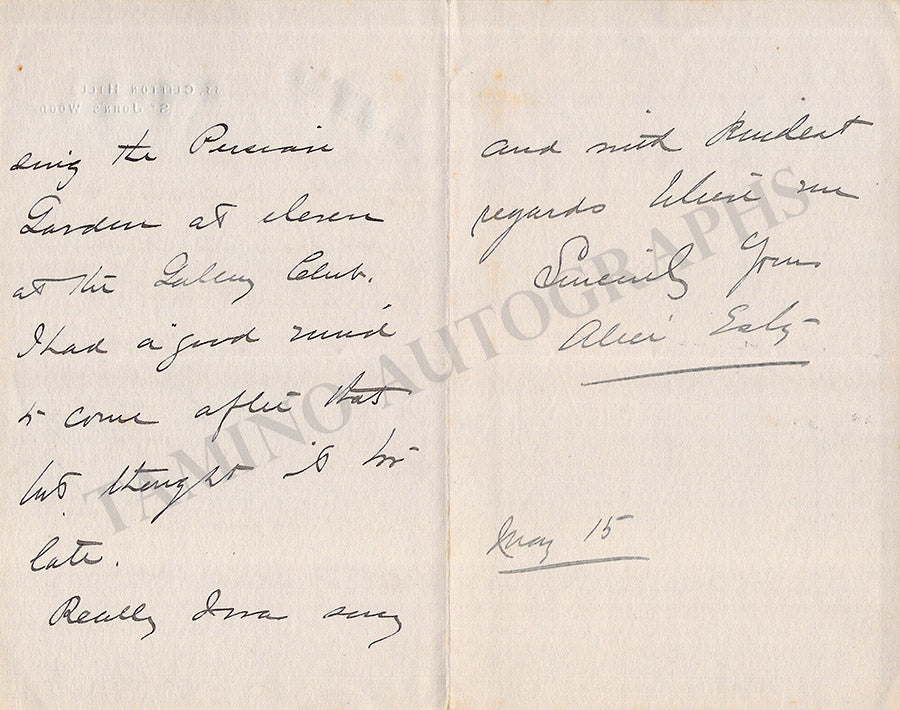 33, CLIFTON HILL
ST JOHN'S WOOD
sing the Persian
Garden at eleven
at the Gallery Club.
I had a good mind
to come after that
but thought it too
late.
Really I was sorry
and with kindest
regards believe me
Sincerely Yours
Alice Esty
May 15
TAMINO AUTOGRAPHS